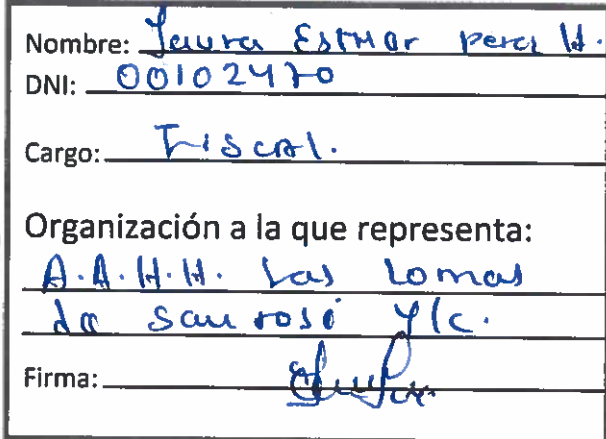 Nombre: Laura Esther Perez H.
DNI: 00102470
Cargo: Fiscal.
Organización a la que representa:
A.A.H.H. Las Lomas
de San José Y/c.
Firma: